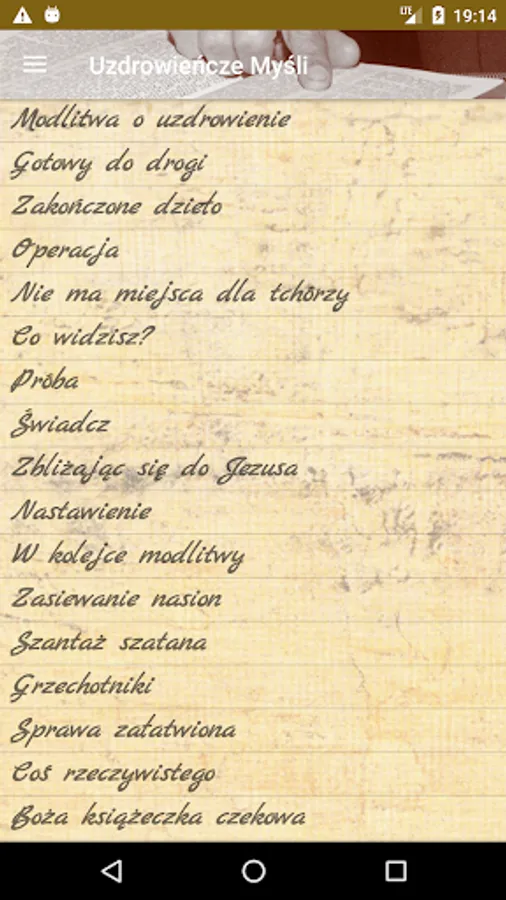 19:14
Uzdrowieńcze Myśli
Modlitwa o uzdrowienie
Gotowy do drogi
Zakończone dzieło
Operacja
Nie ma miejsca dla tchórzy
Co widzisz?
Próba
Świadcz
Zbliżając się do Jezusa
Nastawienie
W kolejce modlitwy
Zasiewanie nasion
Szantaż szatana
Grzechotniki
Sprawa załatwiona
Coś rzeczywistego
Boża książeczka czekowa